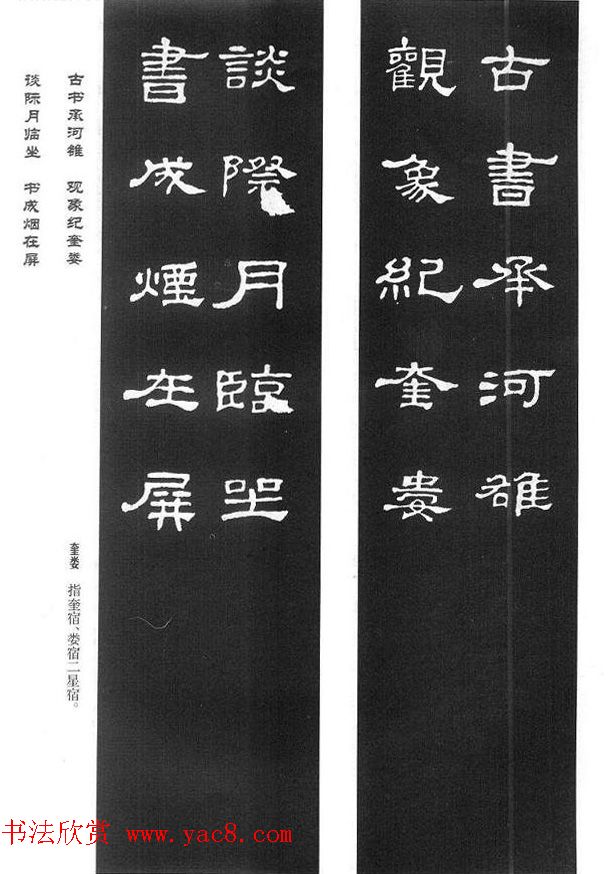 古書承河雒
觀象紀奎婁
談際月臨坐
書成煙在屏
古书承河雒 观象纪奎娄
谈际月临坐 书成烟在屏
奎娄 指奎宿、娄宿二星宿。
书法欣赏 www.yac8.com